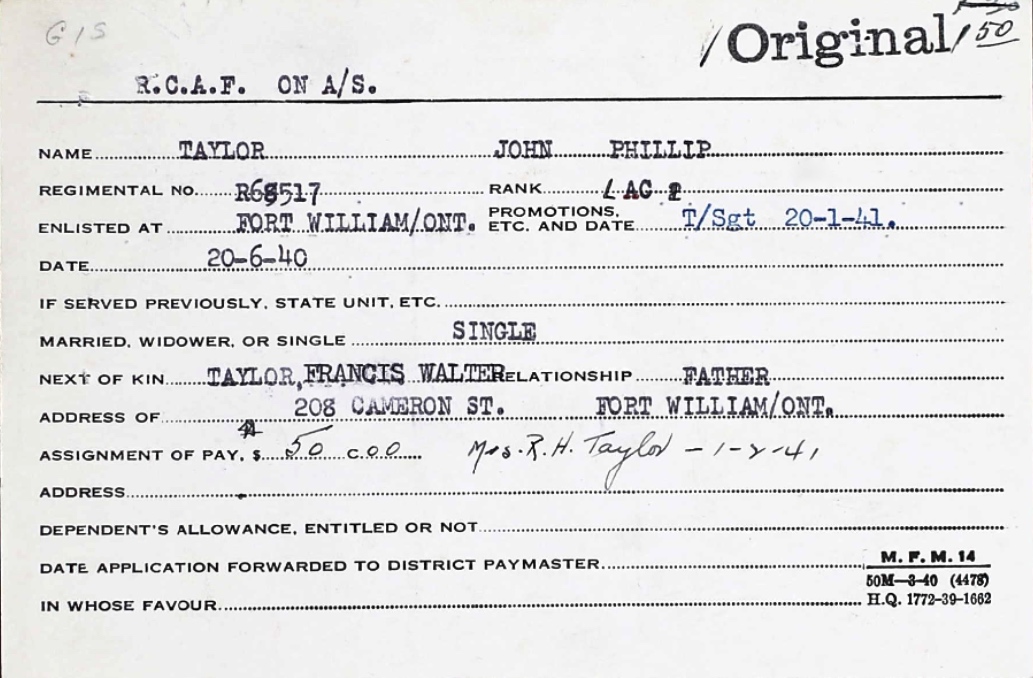 G I S
/ Original / 1 50
R.C.A.F. ON A/S.
NAME TAYLOR JOHN PHILLIP
REGIMENTAL NO. R68517 RANK LAC
ENLISTED AT FORT WILLIAM/ONT. PROMOTIONS, ETC. AND DATE T/Sgt 20-1-41.
DATE 20-6-40
IF SERVED PREVIOUSLY, STATE UNIT, ETC.
MARRIED, WIDOWER, OR SINGLE SINGLE
NEXT OF KIN TAYLOR, FRANCIS WALTER RELATIONSHIP FATHER
ADDRESS OF 208 CAMERON ST. FORT WILLIAM/ONT.
ASSIGNMENT OF PAY, $ 50 C. 00 Mrs. R. H. Taylor - 1-2-41
ADDRESS
DEPENDENT'S ALLOWANCE, ENTITLED OR NOT
DATE APPLICATION FORWARDED TO DISTRICT PAYMASTER
M. F. M. 14
50M—3-40 (4478)
IN WHOSE FAVOUR
H.Q. 1772-39-1662